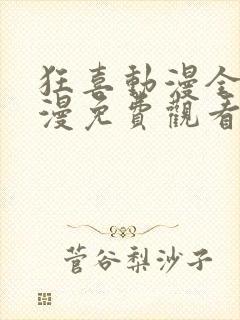 狂喜動漫全
漫免費觀看
菅谷梨沙子